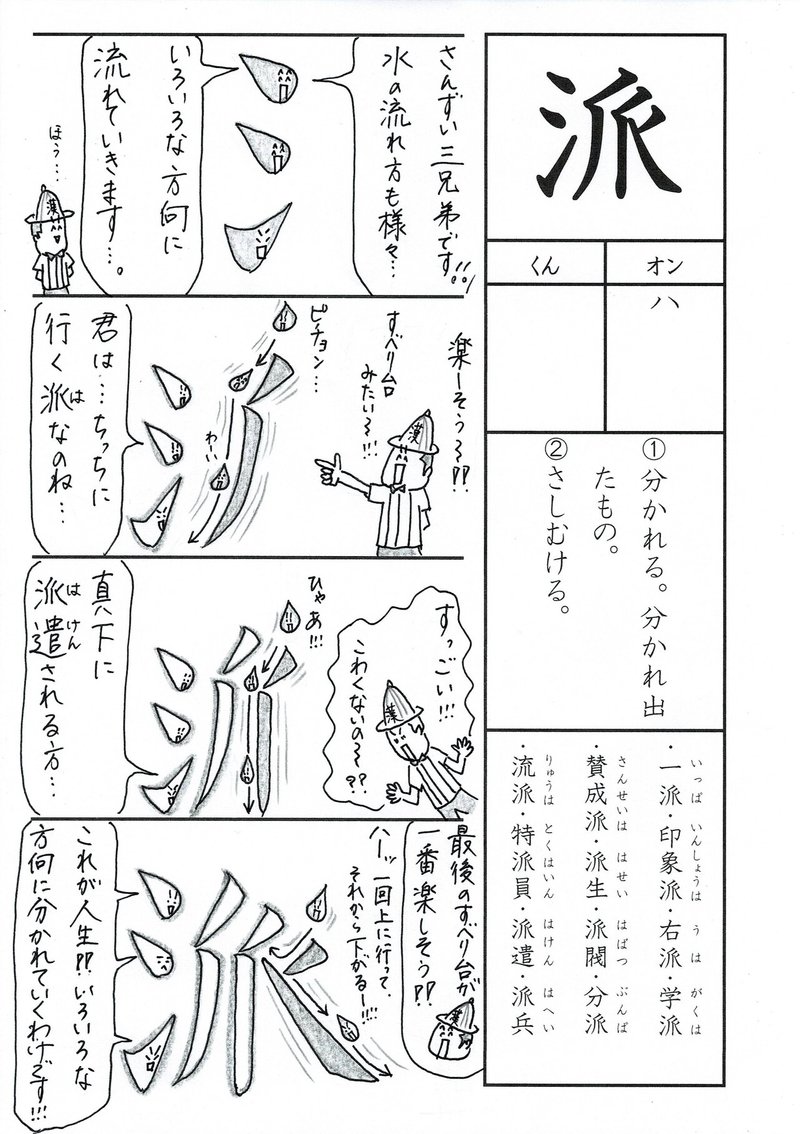 派
オン
くん
ハ
①分かれる。分かれ出
たもの。
②さしむける。
・一派・印象派・右派・学派
いっぱ いんしょうは うは がくは
・賛成派・派生・派閥・分派
さんせいは はせい はばつ ぶんぱ
・流派・特派員・派遣・派兵
りゅうは とくはいん はけん はへい
さんずい三兄弟です!!
水の流れ方も様々…
いろいろな方向に
流れていきます…。
ほう…
漢
楽ーそう〜!?
すべり台
みたい〜!!!
漢
ピチョン…
わーい
君は…ちっちに
行く派なのね…
は
すっごい!!!
こわくないの〜??
漢
ひゃあ!!!
真下に
派遣される方…
はけん
最後のすべり台が
一番楽しそう!?
漢
ハーッ一回上に行って、
それから下がるー!!!
これが人生!?いろいろな
方向に分かれていくわけです!!!